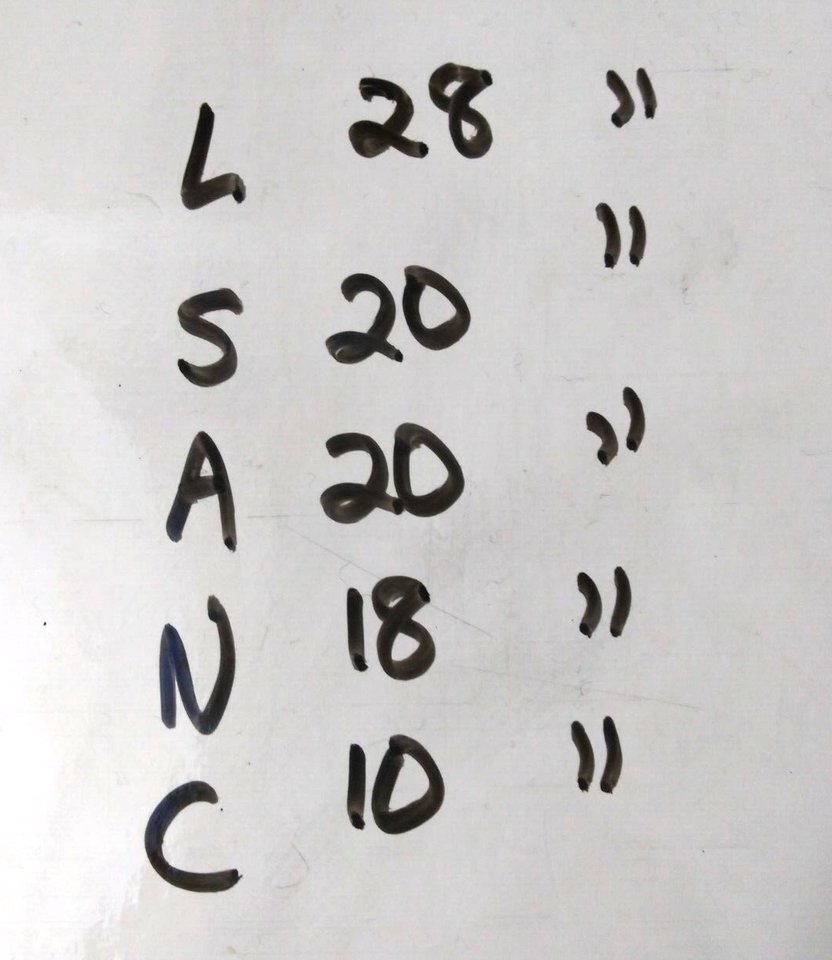 L 28 "
S 20 "
A 20 "
N 18 "
C 10 "